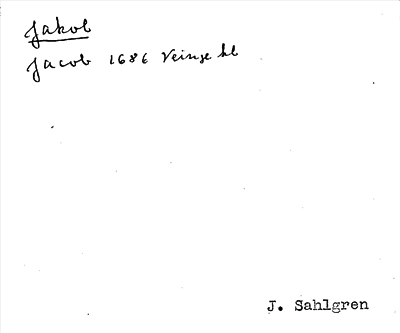 Jakob
Jacob 1686 Veinge hl
J. Sahlgren